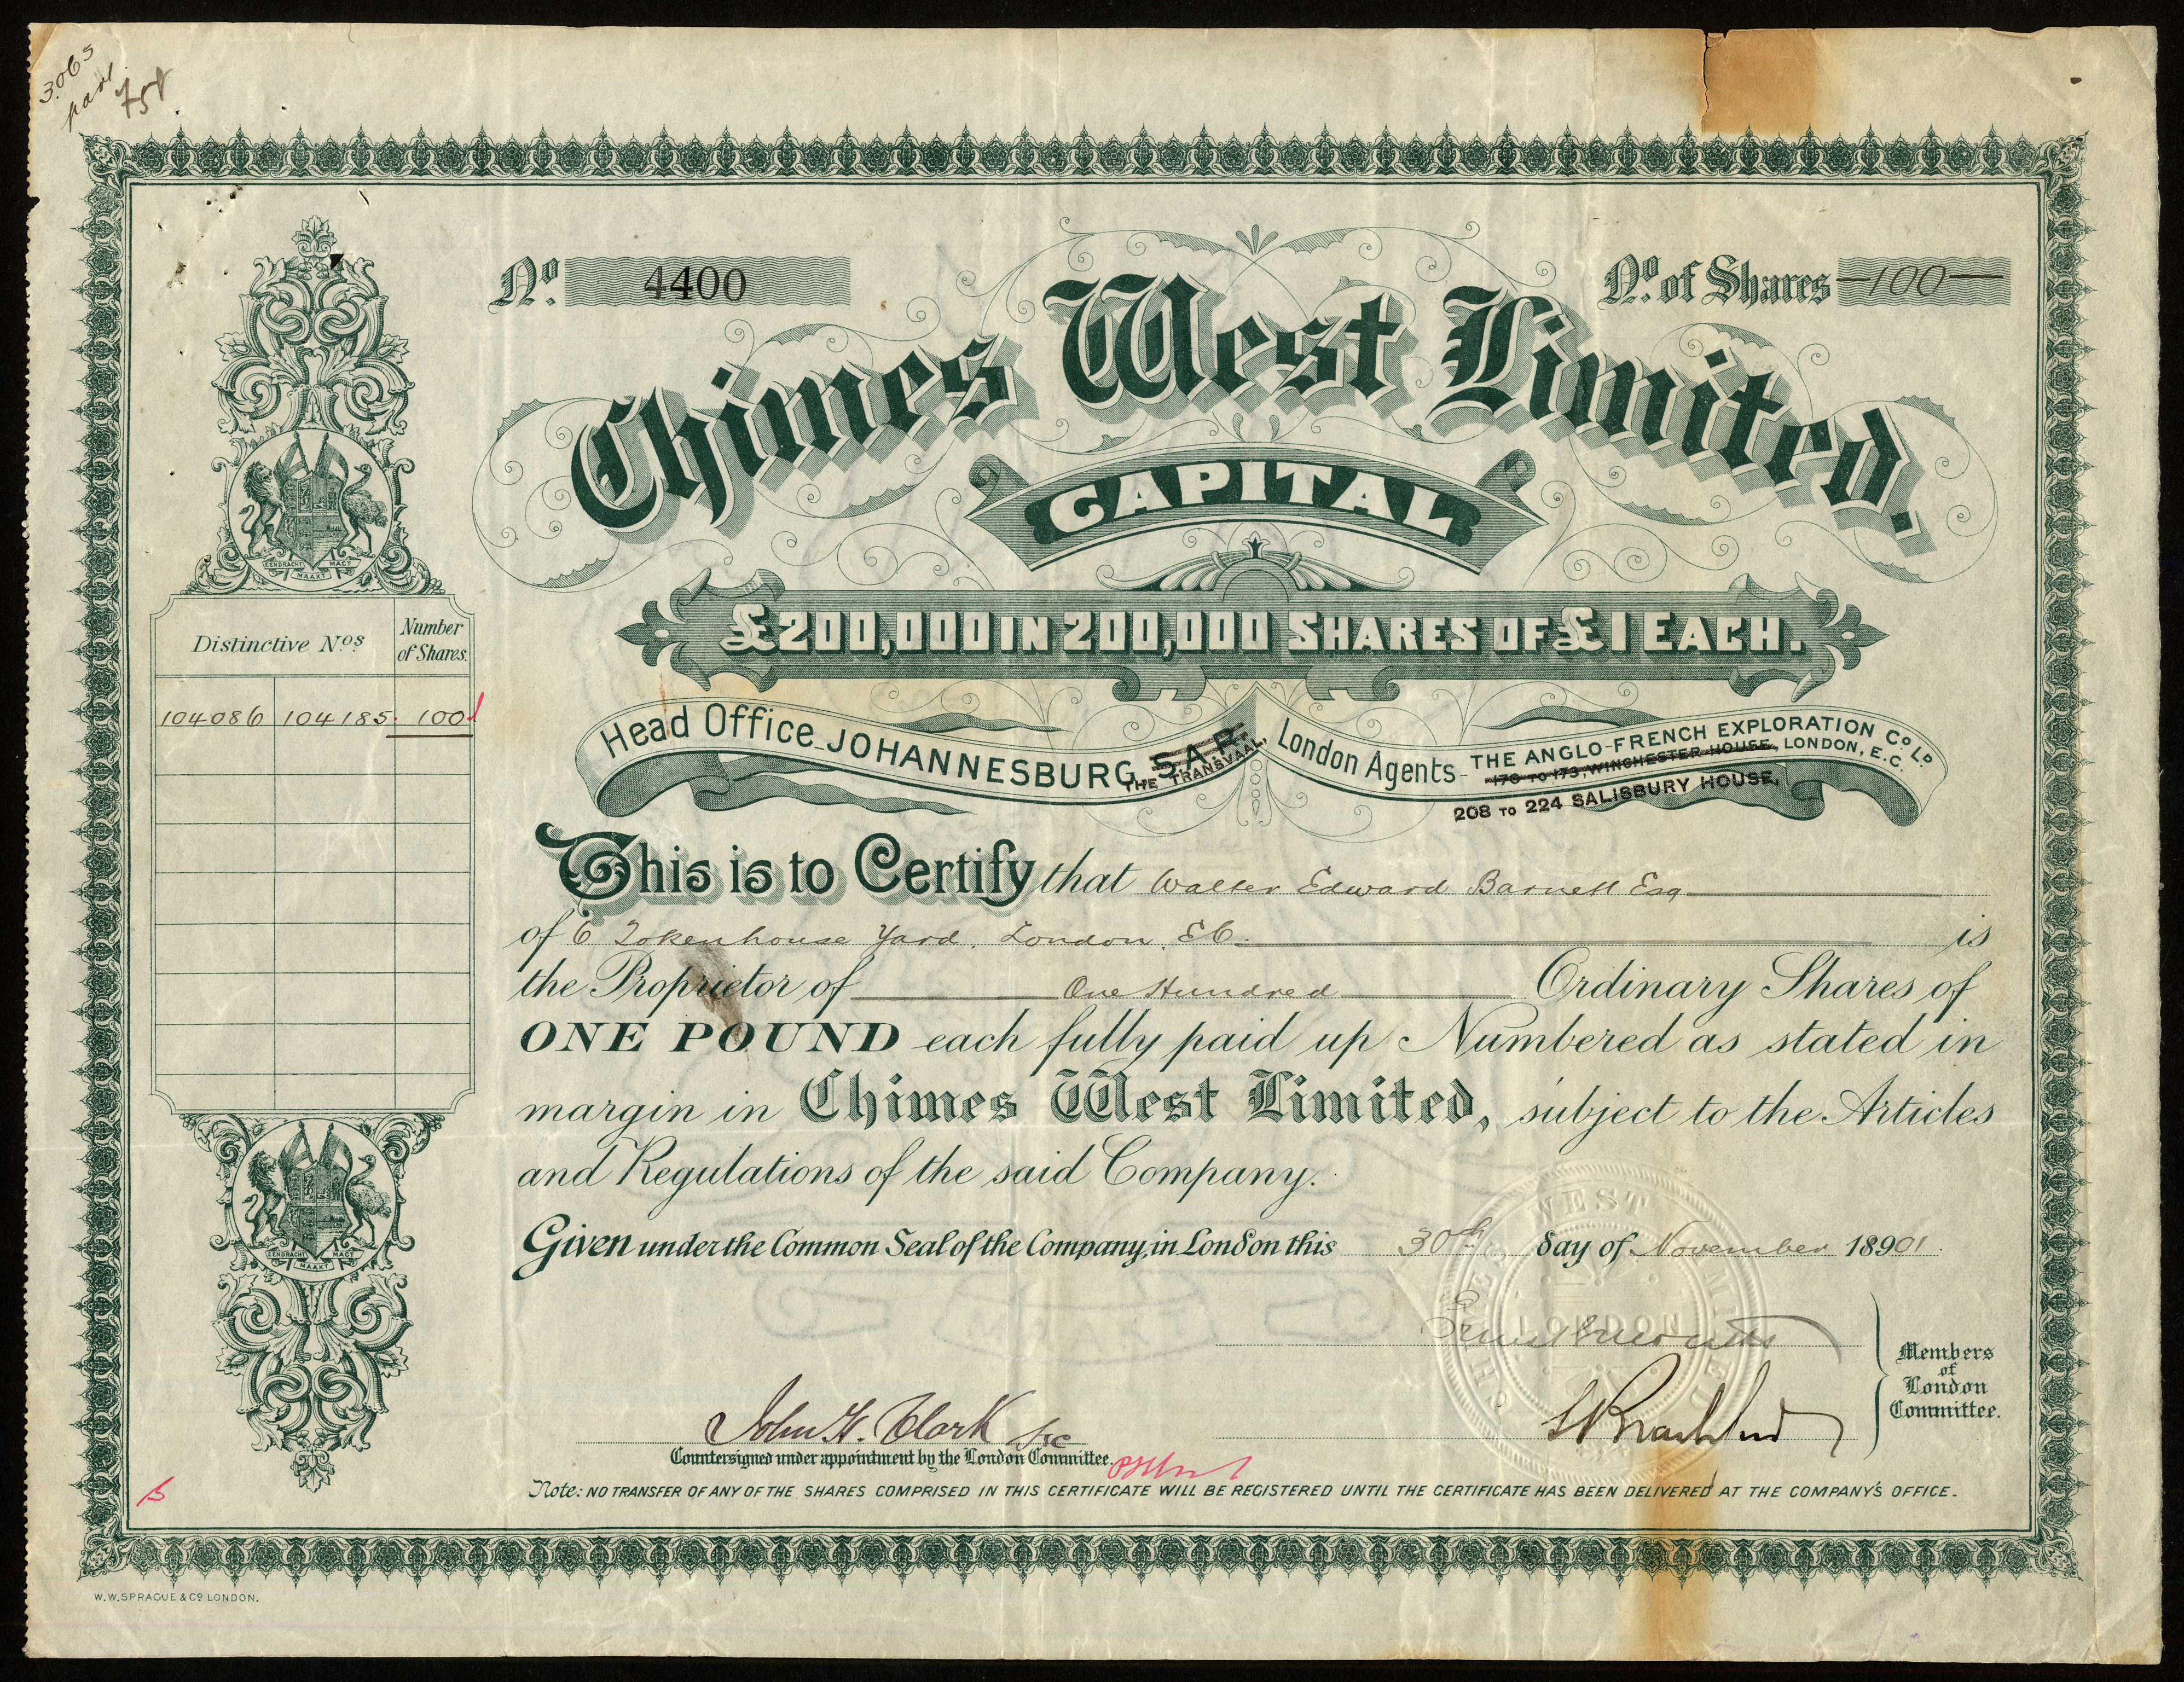 3065
754
Nº. 4400
Nº. of Shares 100
Chimes West Limited.
CAPITAL
£200,000 IN 200,000 SHARES OF £1 EACH.
Head Office JOHANNESBURG, S.A.R.
THE TRANSVAAL,
London Agents - THE ANGLO-FRENCH EXPLORATION Cº Lᴰ
170 TO 173, WINCHESTER HOUSE, LONDON, E.C.
208 TO 224 SALISBURY HOUSE,
EENDRACHT MAAKT MAGT
Distinctive Nºs
Number of Shares.
104086 104185. 100
This is to Certify that Walter Edward Barnett Esq
of 6 Tokenhouse Yard. London. EC. is
the Proprietor of One Hundred Ordinary Shares of
ONE POUND each fully paid up Numbered as stated in
margin in Chimes West Limited, subject to the Articles
and Regulations of the said Company.
EENDRACHT MAAKT MAGT
Given under the Common Seal of the Company, in London this 30th day of November 18901.
CHIMES WEST LIMITED
LONDON
Members
of
London
Committee.
John H. Clark Sec
Countersigned under appointment by the London Committee.
Note: NO TRANSFER OF ANY OF THE SHARES COMPRISED IN THIS CERTIFICATE WILL BE REGISTERED UNTIL THE CERTIFICATE HAS BEEN DELIVERED AT THE COMPANY'S OFFICE.
W.W. SPRAGUE & Cº LONDON.